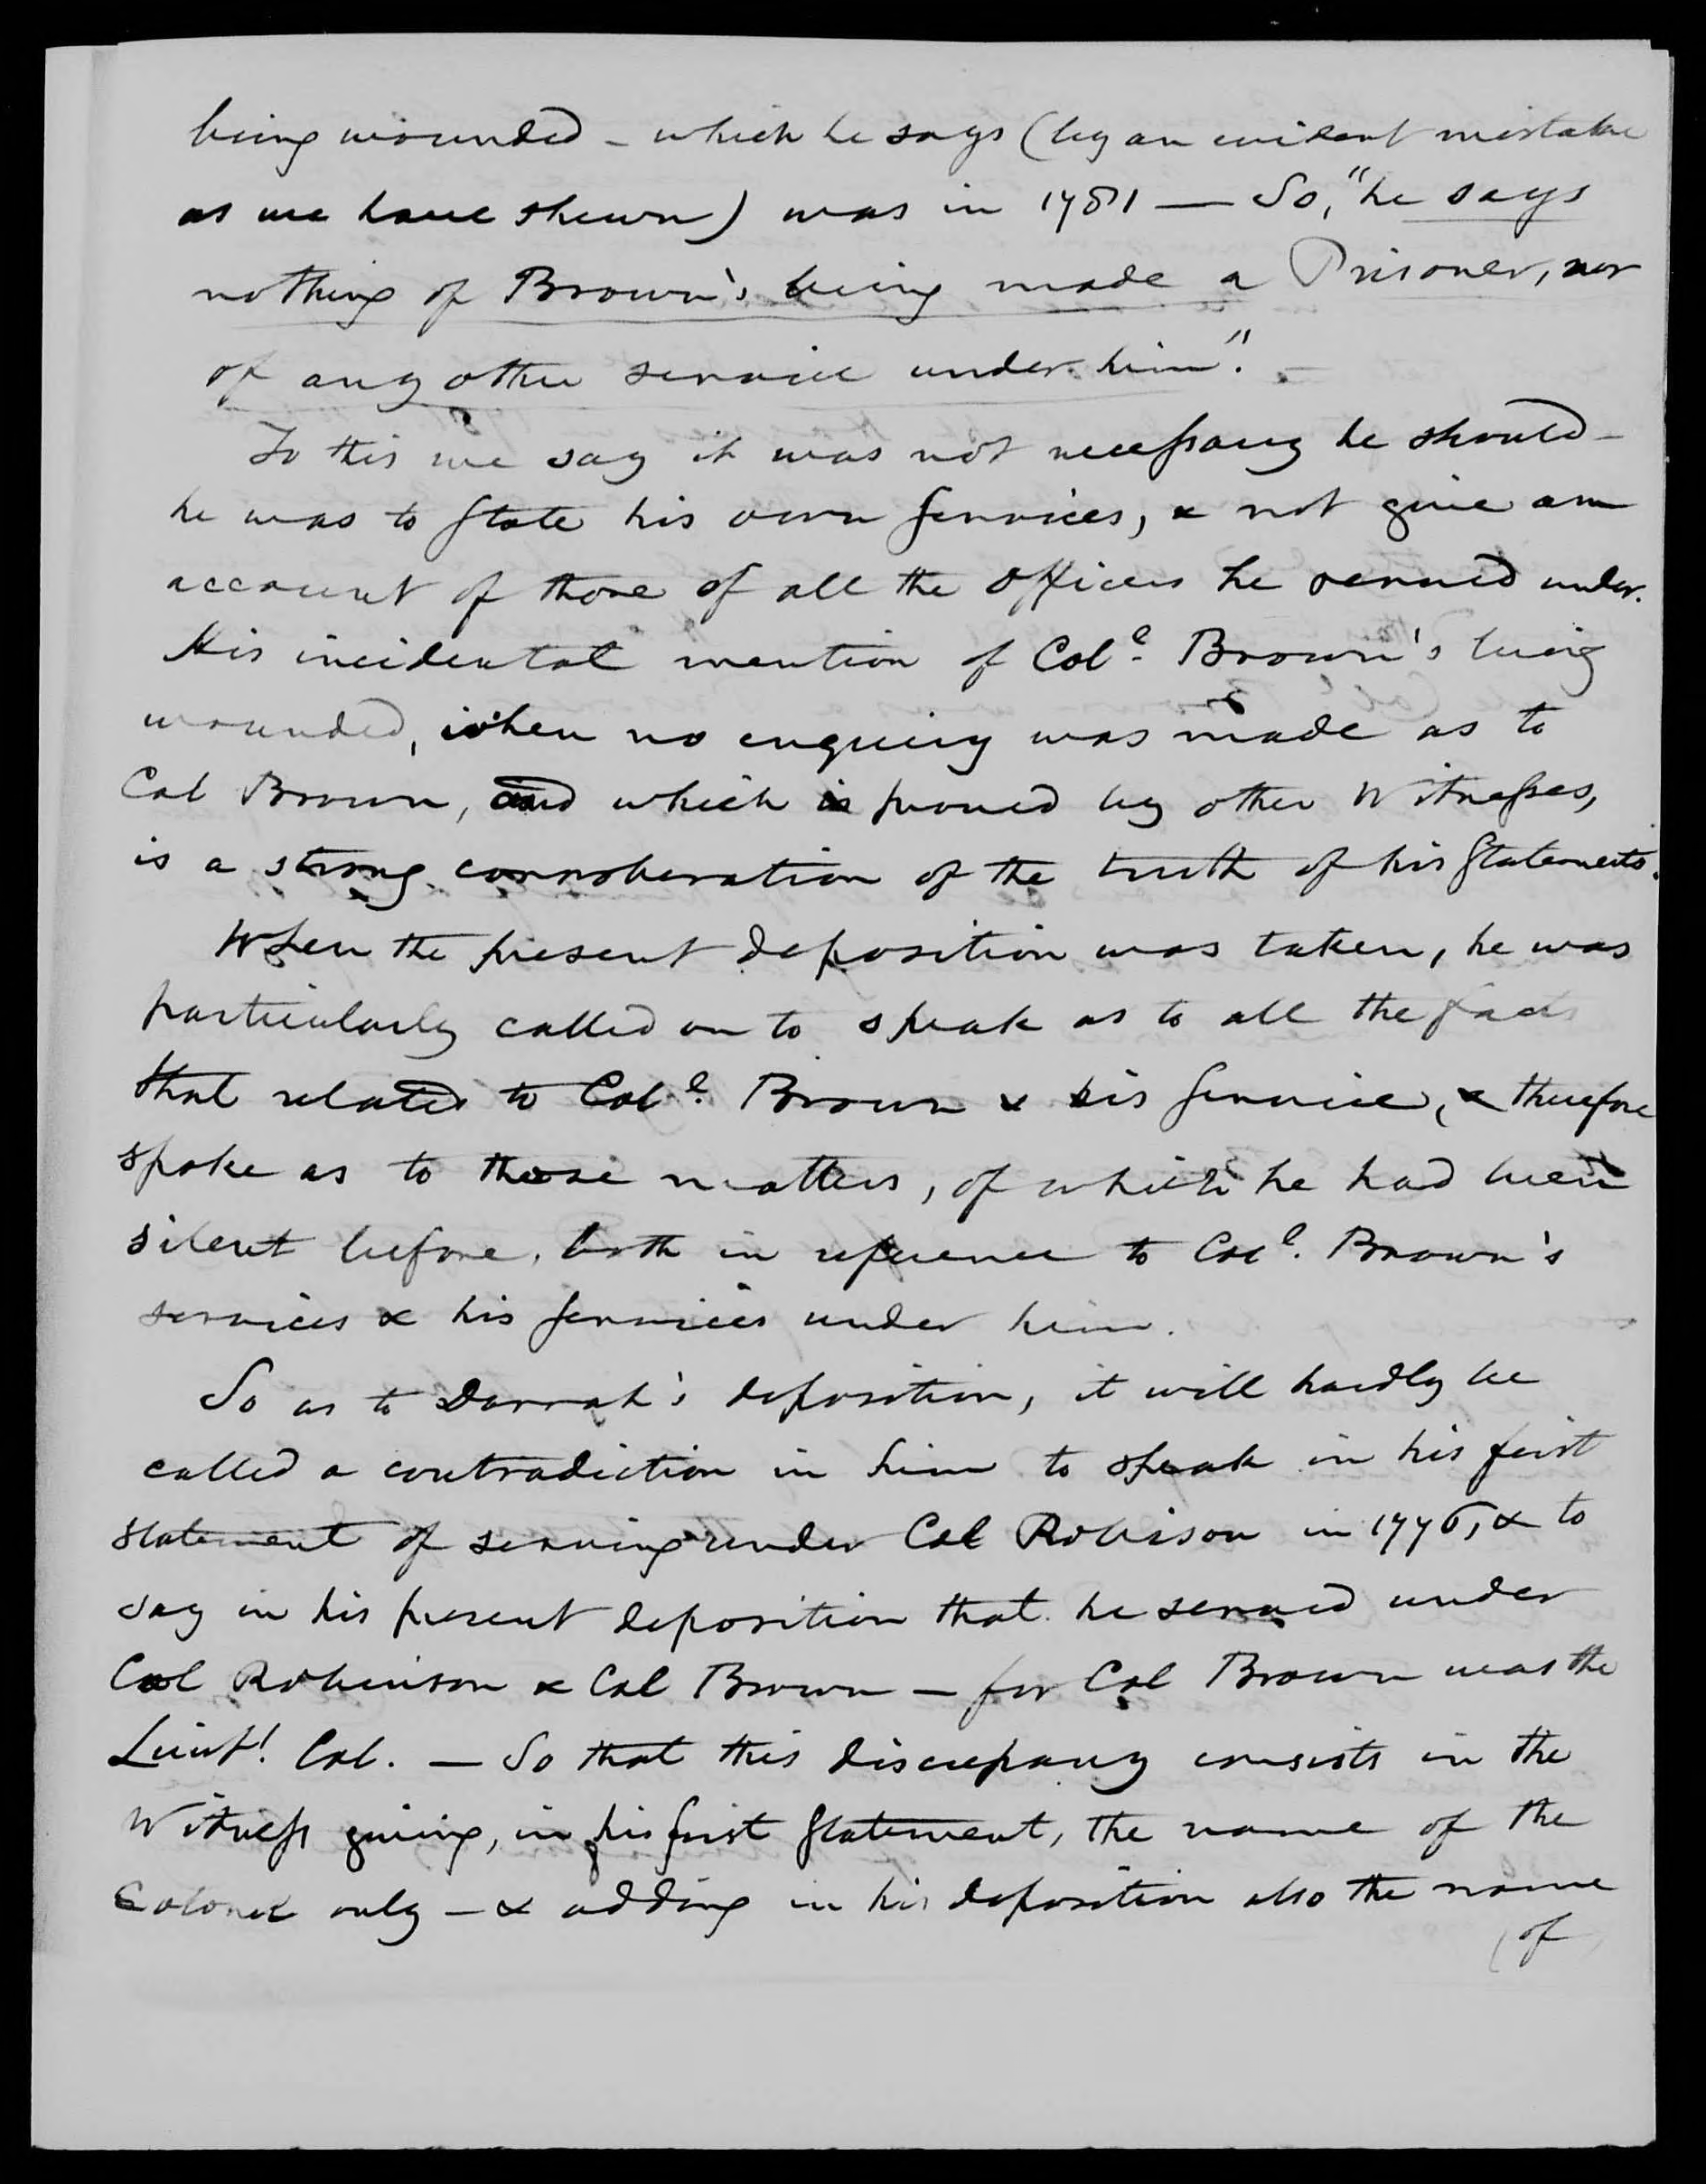 being wounded - which he says (by an evident mistake
as we have shewn) was in 1781 — So, "he says
nothing of Brown's being made a Prisoner, nor
of any other service under him".
To this we say it was not necessary he should -
he was to state his own services, & not give an
account of those of all the officers he served under.
His incidental mention of Col. Brown's being
wounded, when no enquiry was made as to
Col Brown, and which is proved by other Witnesses,
is a strong corroberation of the truth of his Statements.
When the present deposition was taken, he was
particularly called on to speak as to all the facts
that related to Col. Brown & his service, & therefore
spoke as to these matters, of which he had been
silent before, both in reference to Col. Brown's
services & his services under him.
So as to Darrah's deposition, it will hardly be
called a contradiction in him to speak in his first
statement of serving under Col Robison in 1776, & to
say in his present deposition that he served under
Col Robinson & Col Brown — for Col Brown was the
Lieut! Col. — So that this discrepancy consists in the
Witness giving, in his first Statement, the name of the
Colonel only — & adding in his deposition also the name
(of